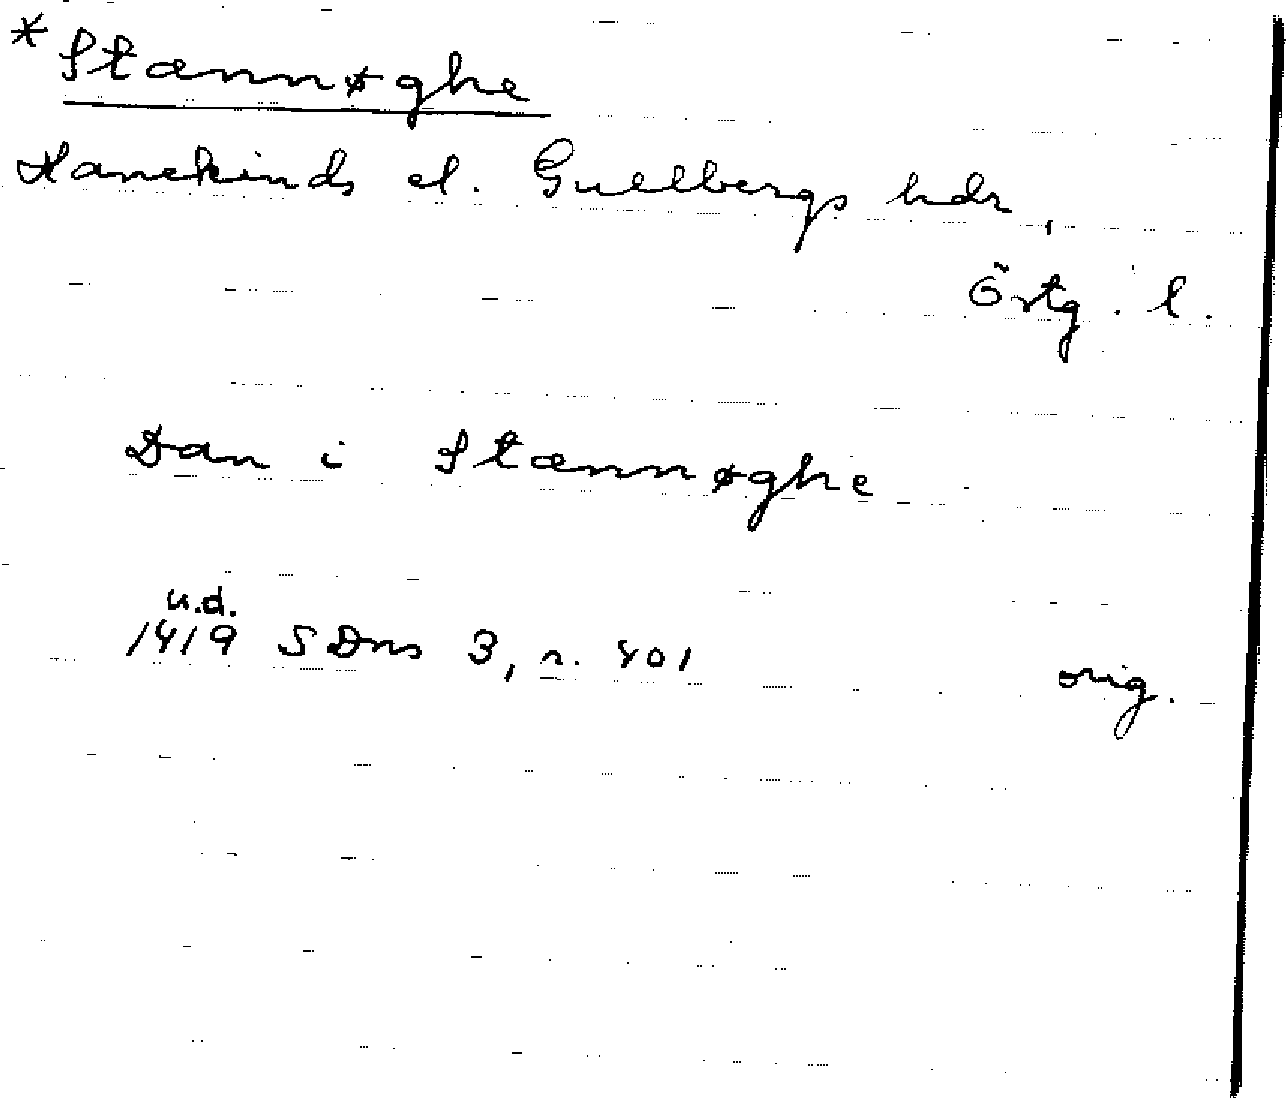 *Stænnøghe
Hanekinds el. Gullbergs hdr,
Östg. l.
Dan i Stænnøghe
u.d.
1419 SDns 3, s. 401
orig.